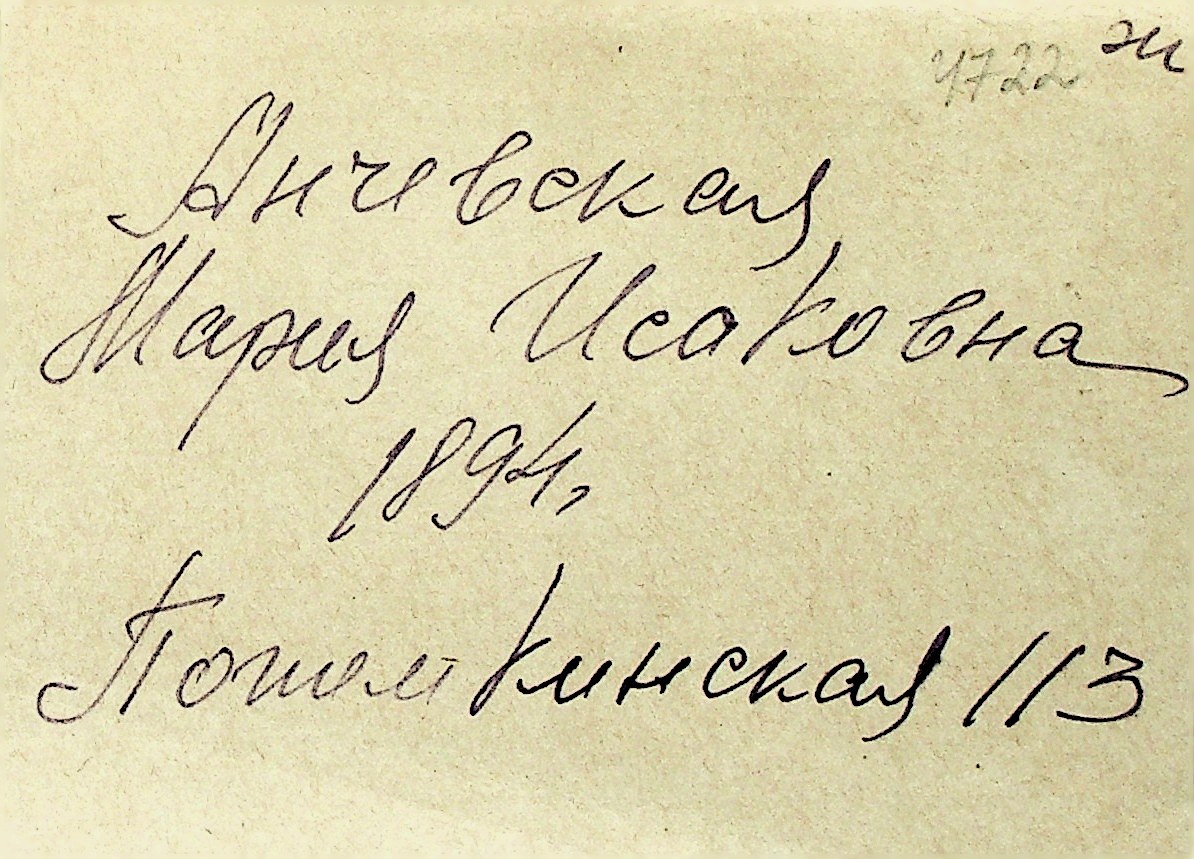 4722 ж
Анчевская
Мария Исаковна
1894,
Потемкинская 113